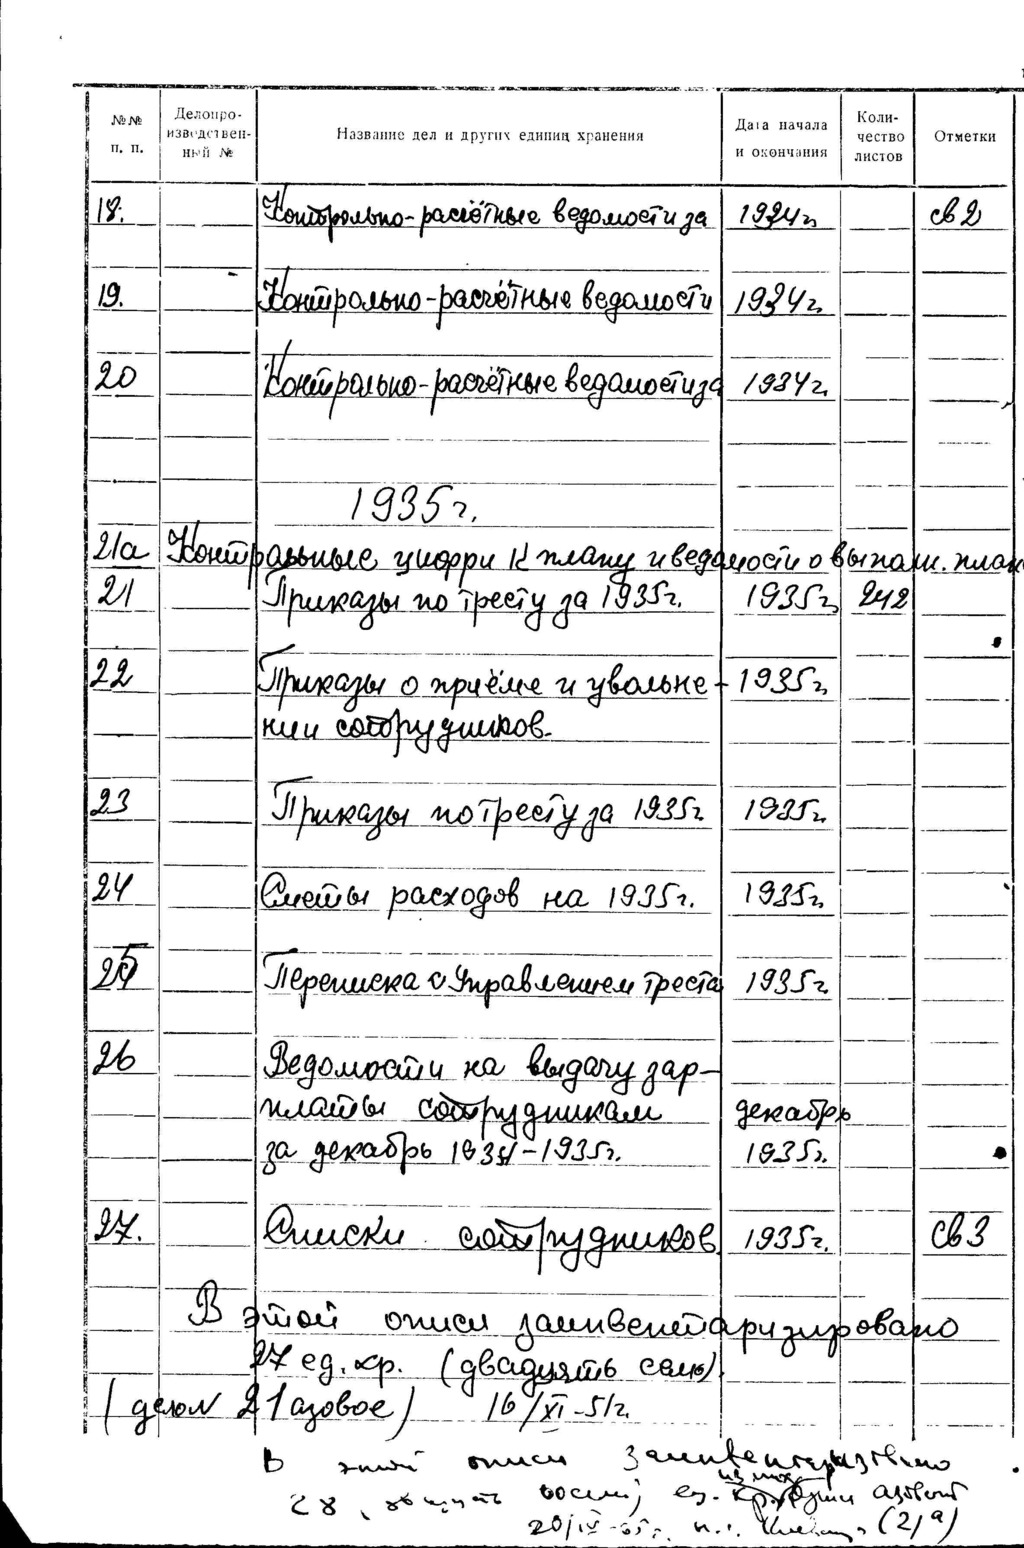 №№ п. п. Делопроизводствен-ный № Название дел и других единиц хранения Дата начала и окончания Коли-чество листов Отметки
18. Контрольно-расчётные ведомости за 1934г. св 2
19. Контрольно-расчётные ведомости 1934г.
20 Контрольно-расчётные ведомости за 1934г.
1935г.
21а Контрольные цифри к плану и ведомости о выполн. план
21 Приказы по тресту за 1935г. 1935г. 242
22 Приказы о приёме и увольне- 1935г.
нии сотрудников.
23 Приказы по тресту за 1935г 1935г.
24 Сметы расходов на 1935г. 1935г.
25 Переписка с Управлением треста 1935г.
26 Ведомости на выдачу зар-
платы сотрудникам декабрь
за декабрь 1934-1935г. 1935г.
27. Списки сотрудников. 1935г. св 3
В этой описи заинвентаризировано
27 ед. хр. (двадцять семь).
(дело N 21 азовое) 16/XI-51г.
В этой описи
28 восемь) ед. хр. из них
(21а)